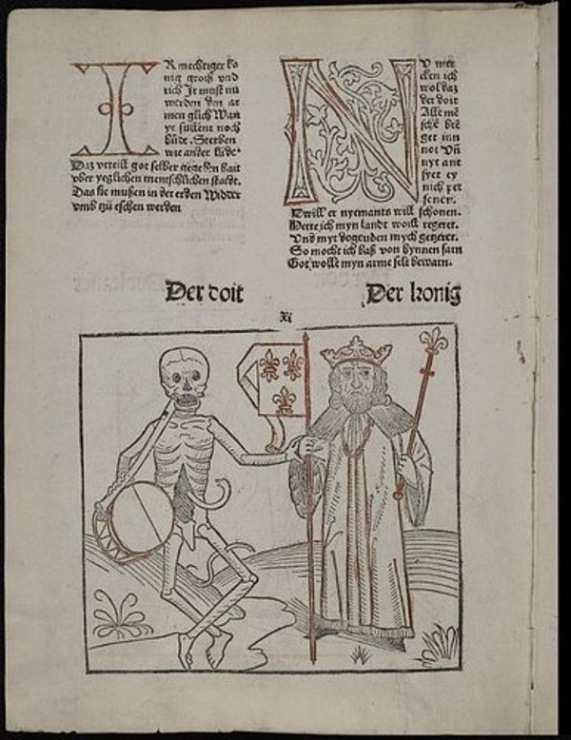 IR mechtiger ko
nig groiß vnd
rich Ir must nu
werden den ar
men glich Wan
yr sullent noch
hude. Sterben
wie ander lude
Daz vrteill got selber hait
vber yeglichen menschlichen staedt.
Das sie mußen in der erden Widder
vmb tzü eschen werden
NU mer
cken ich
wol daz
der doit
Alle mē
schē brē
get inn
not Vñ
nyt ant
ey
nich per
sener.
will er nyemants will schonen.
Hette ich myn landt woill regeret.
Vnd myt dogenden mych getzeret.
So mocht ich baß von hynnen farn
Got wolle myn arme sele bewarn.
Der doit
Der konig
Xi